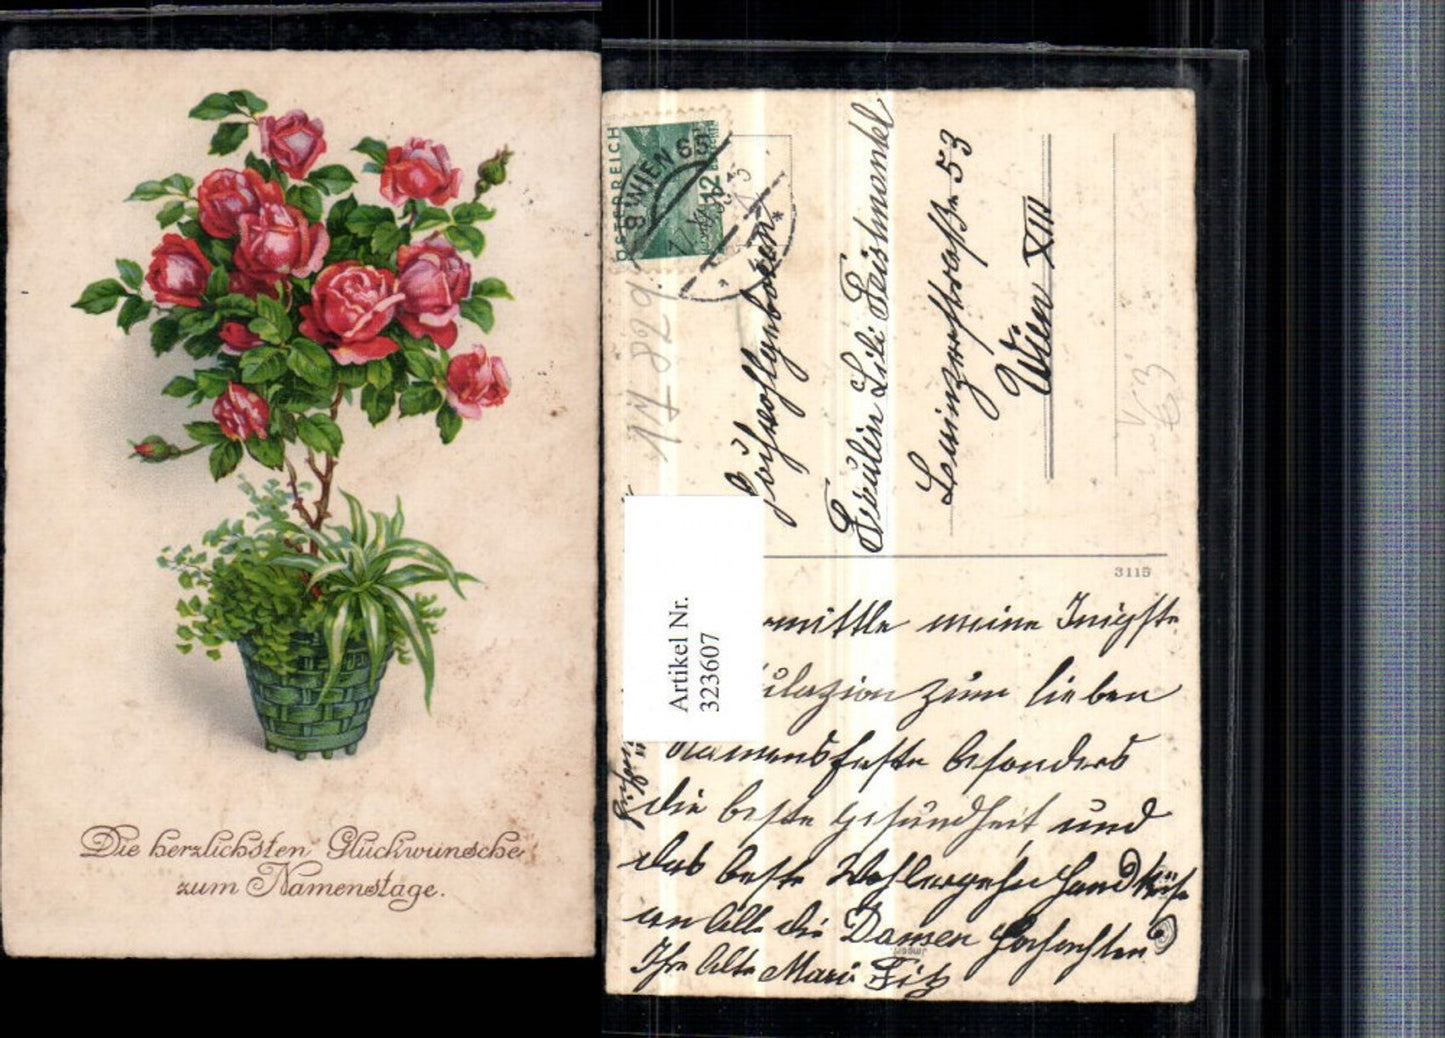 Die herzlichsten Glückwünsche
zum Namenstage.
ÖSTERREICH
8 WIEN 65
12
Hochwohlgeboren
Fräulein Lili Feishmantel
Lainzerstraße 53
Wien XIII
17829
Artikel Nr.
323607
3115
rmittle meine Inigste
ulazion zum lieben
Namensfeste besonders
die beste Gesundheit und
das beste Wohlergehn Handküsse
an alle die Damen
Ihre alte Mari Fitz